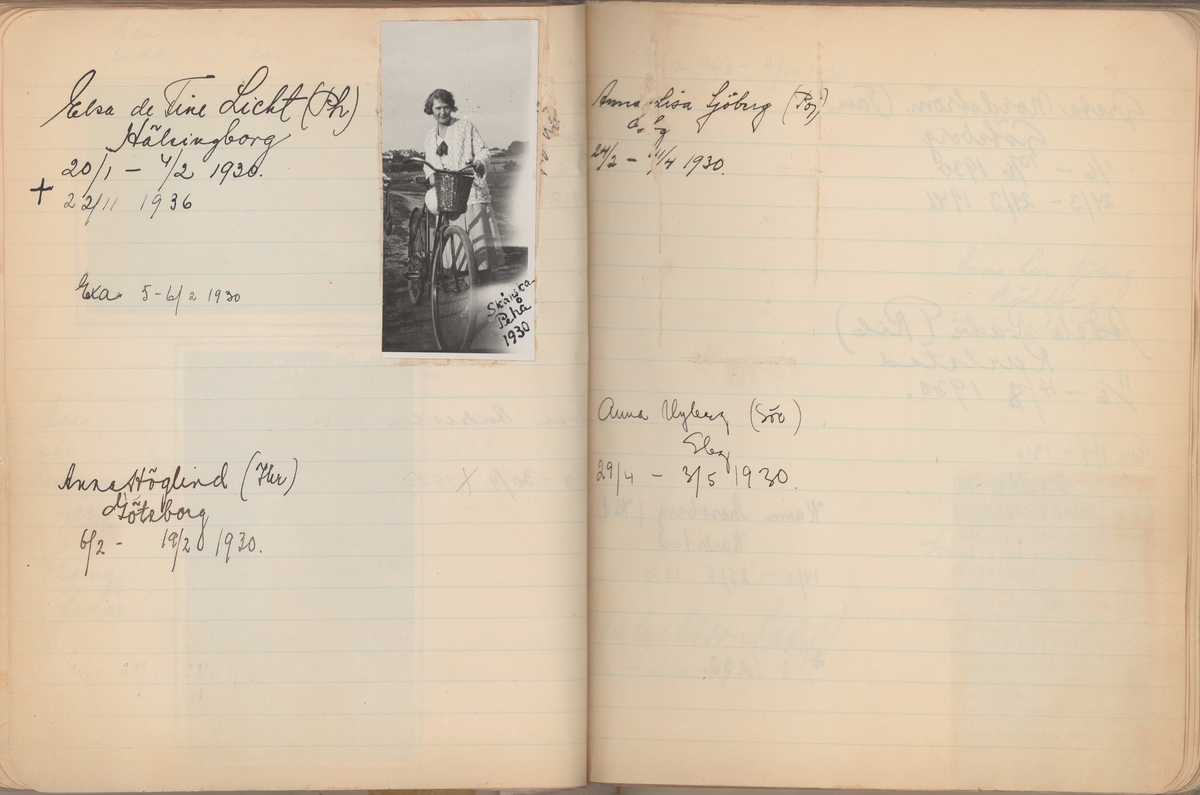 Elsa de Fine Licht (Ph)
Hälsingborg
20/1 – 4/2 1930.
+ 22/11 1936
Exa. 5-6/2 1930
Skånska
Peha
1930
Anna Höglind (Her)
Göteborg
6/2 - 19/2 1930.
Anna-Lisa Sjöberg
24/2 – 11/4 1930.
Anna Nyberg (Söo)
Ebg
29/4 – 3/5 1930.